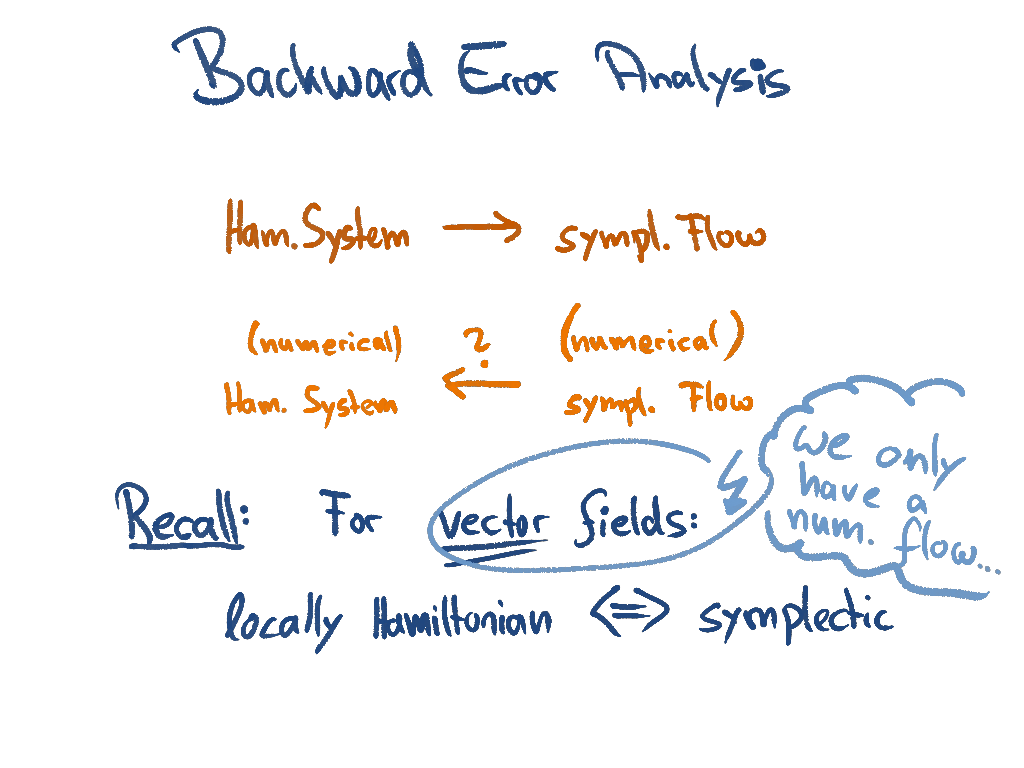 Backward Error Analysis
Ham. System → sympl. Flow
(numerical) ? (numerical)
Ham. System ← sympl. Flow
we only
have a
num. flow...
Recall: For vector fields:
locally Hamiltonian <=> symplectic